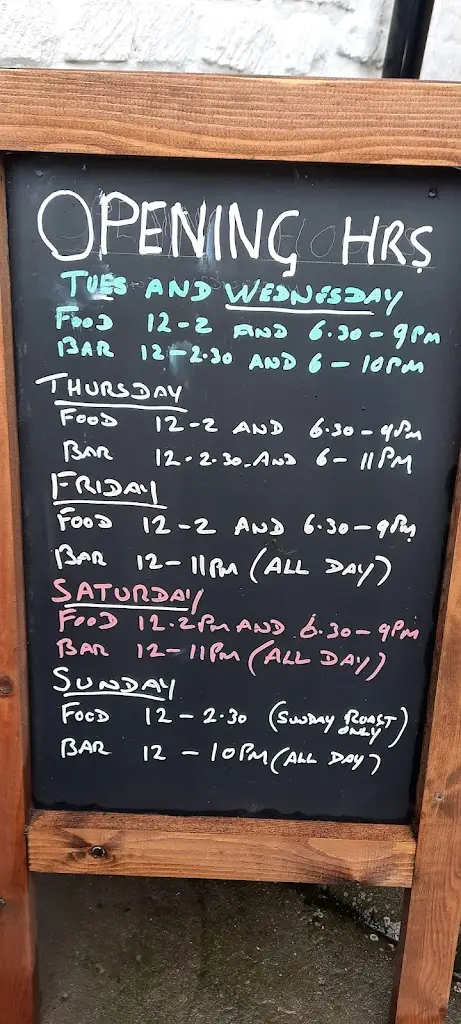 OPENING HRS
TUES AND WEDNESDAY
FOOD 12-2 AND 6.30-9PM
BAR 12-2.30 AND 6-10PM
THURSDAY
FOOD 12-2 AND 6.30-9PM
BAR 12-2.30-AND 6-11PM
FRIDAY
FOOD 12-2 AND 6.30-9PM
BAR 12-11PM (ALL DAY)
SATURDAY
FOOD 12.2PM AND 6.30-9PM
BAR 12-11PM (ALL DAY)
SUNDAY
FOOD 12-2.30 (SUNDAY ROAST ONLY)
BAR 12-10PM (ALL DAY)